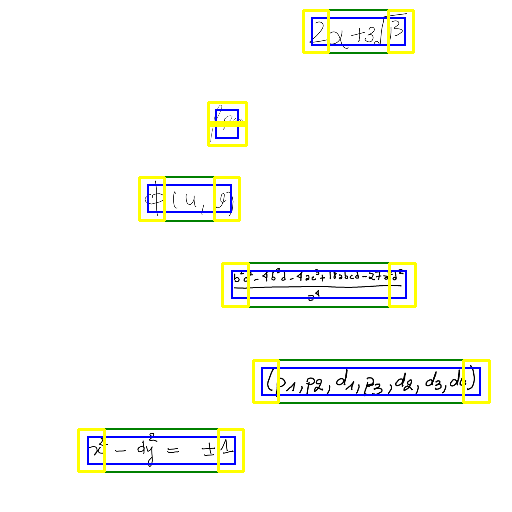 2x+3√3
ϕ(u,v)
(b²c²-4b³d-4ac³+18abcd-27a²d²)/a⁴
(p₁,p₂,d₁,p₃,d₂,d₃,d₄)
x²-dy²= ±1